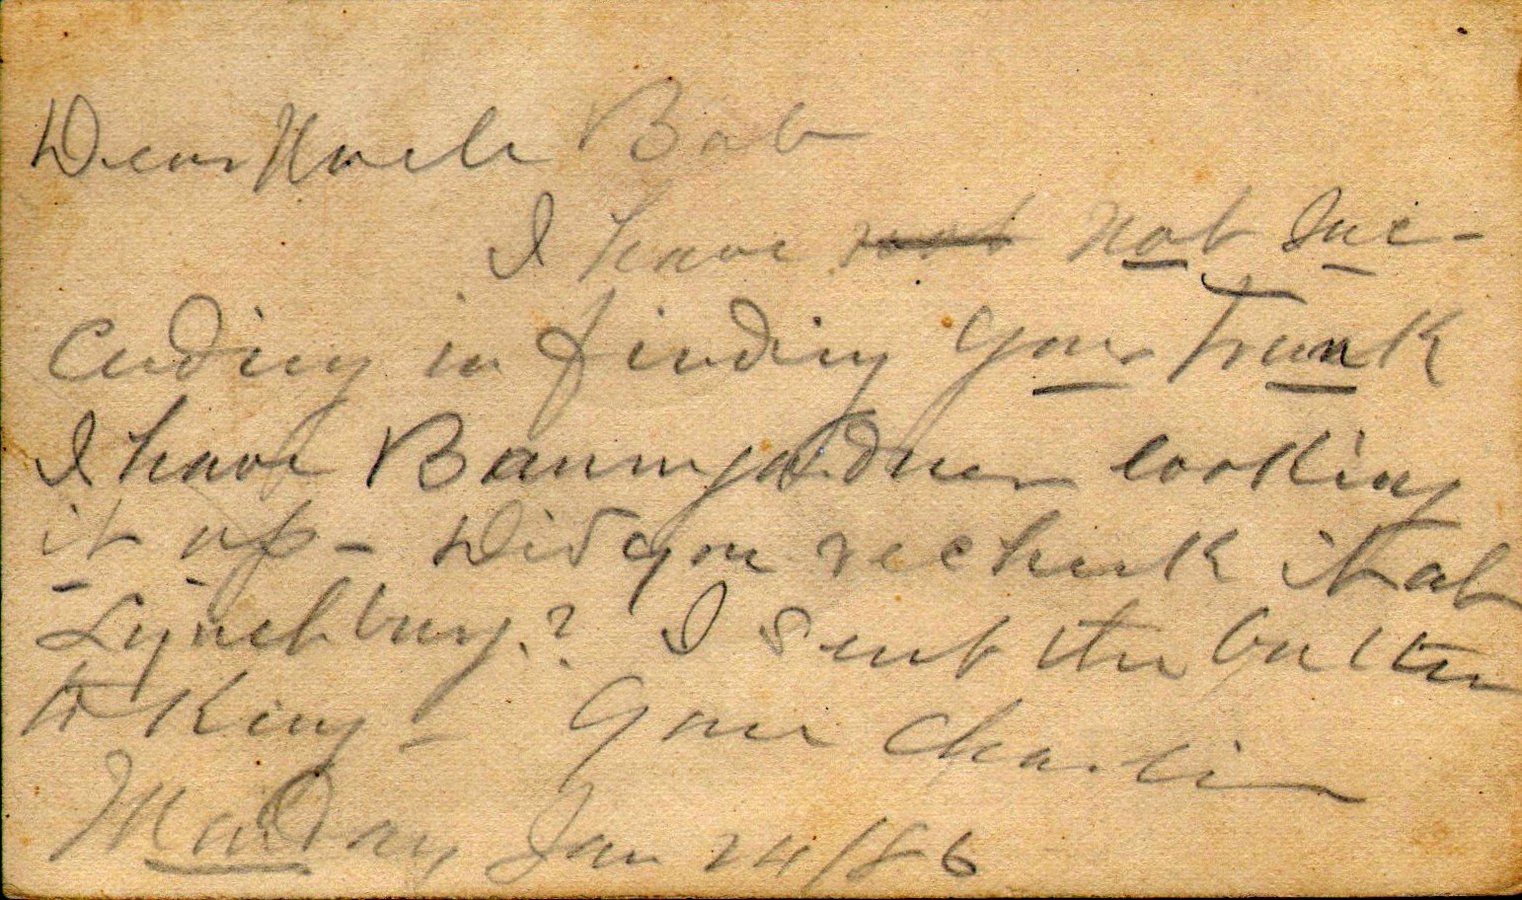 Dear Uncle Bob
I have not not Suc-
ceeding in finding your Trunk
I have Baumgardner looking
it up - Did you recheck it at
Lynchburg? I Sent the butter
to King - Your Charlie
Monday, Jan 24/86